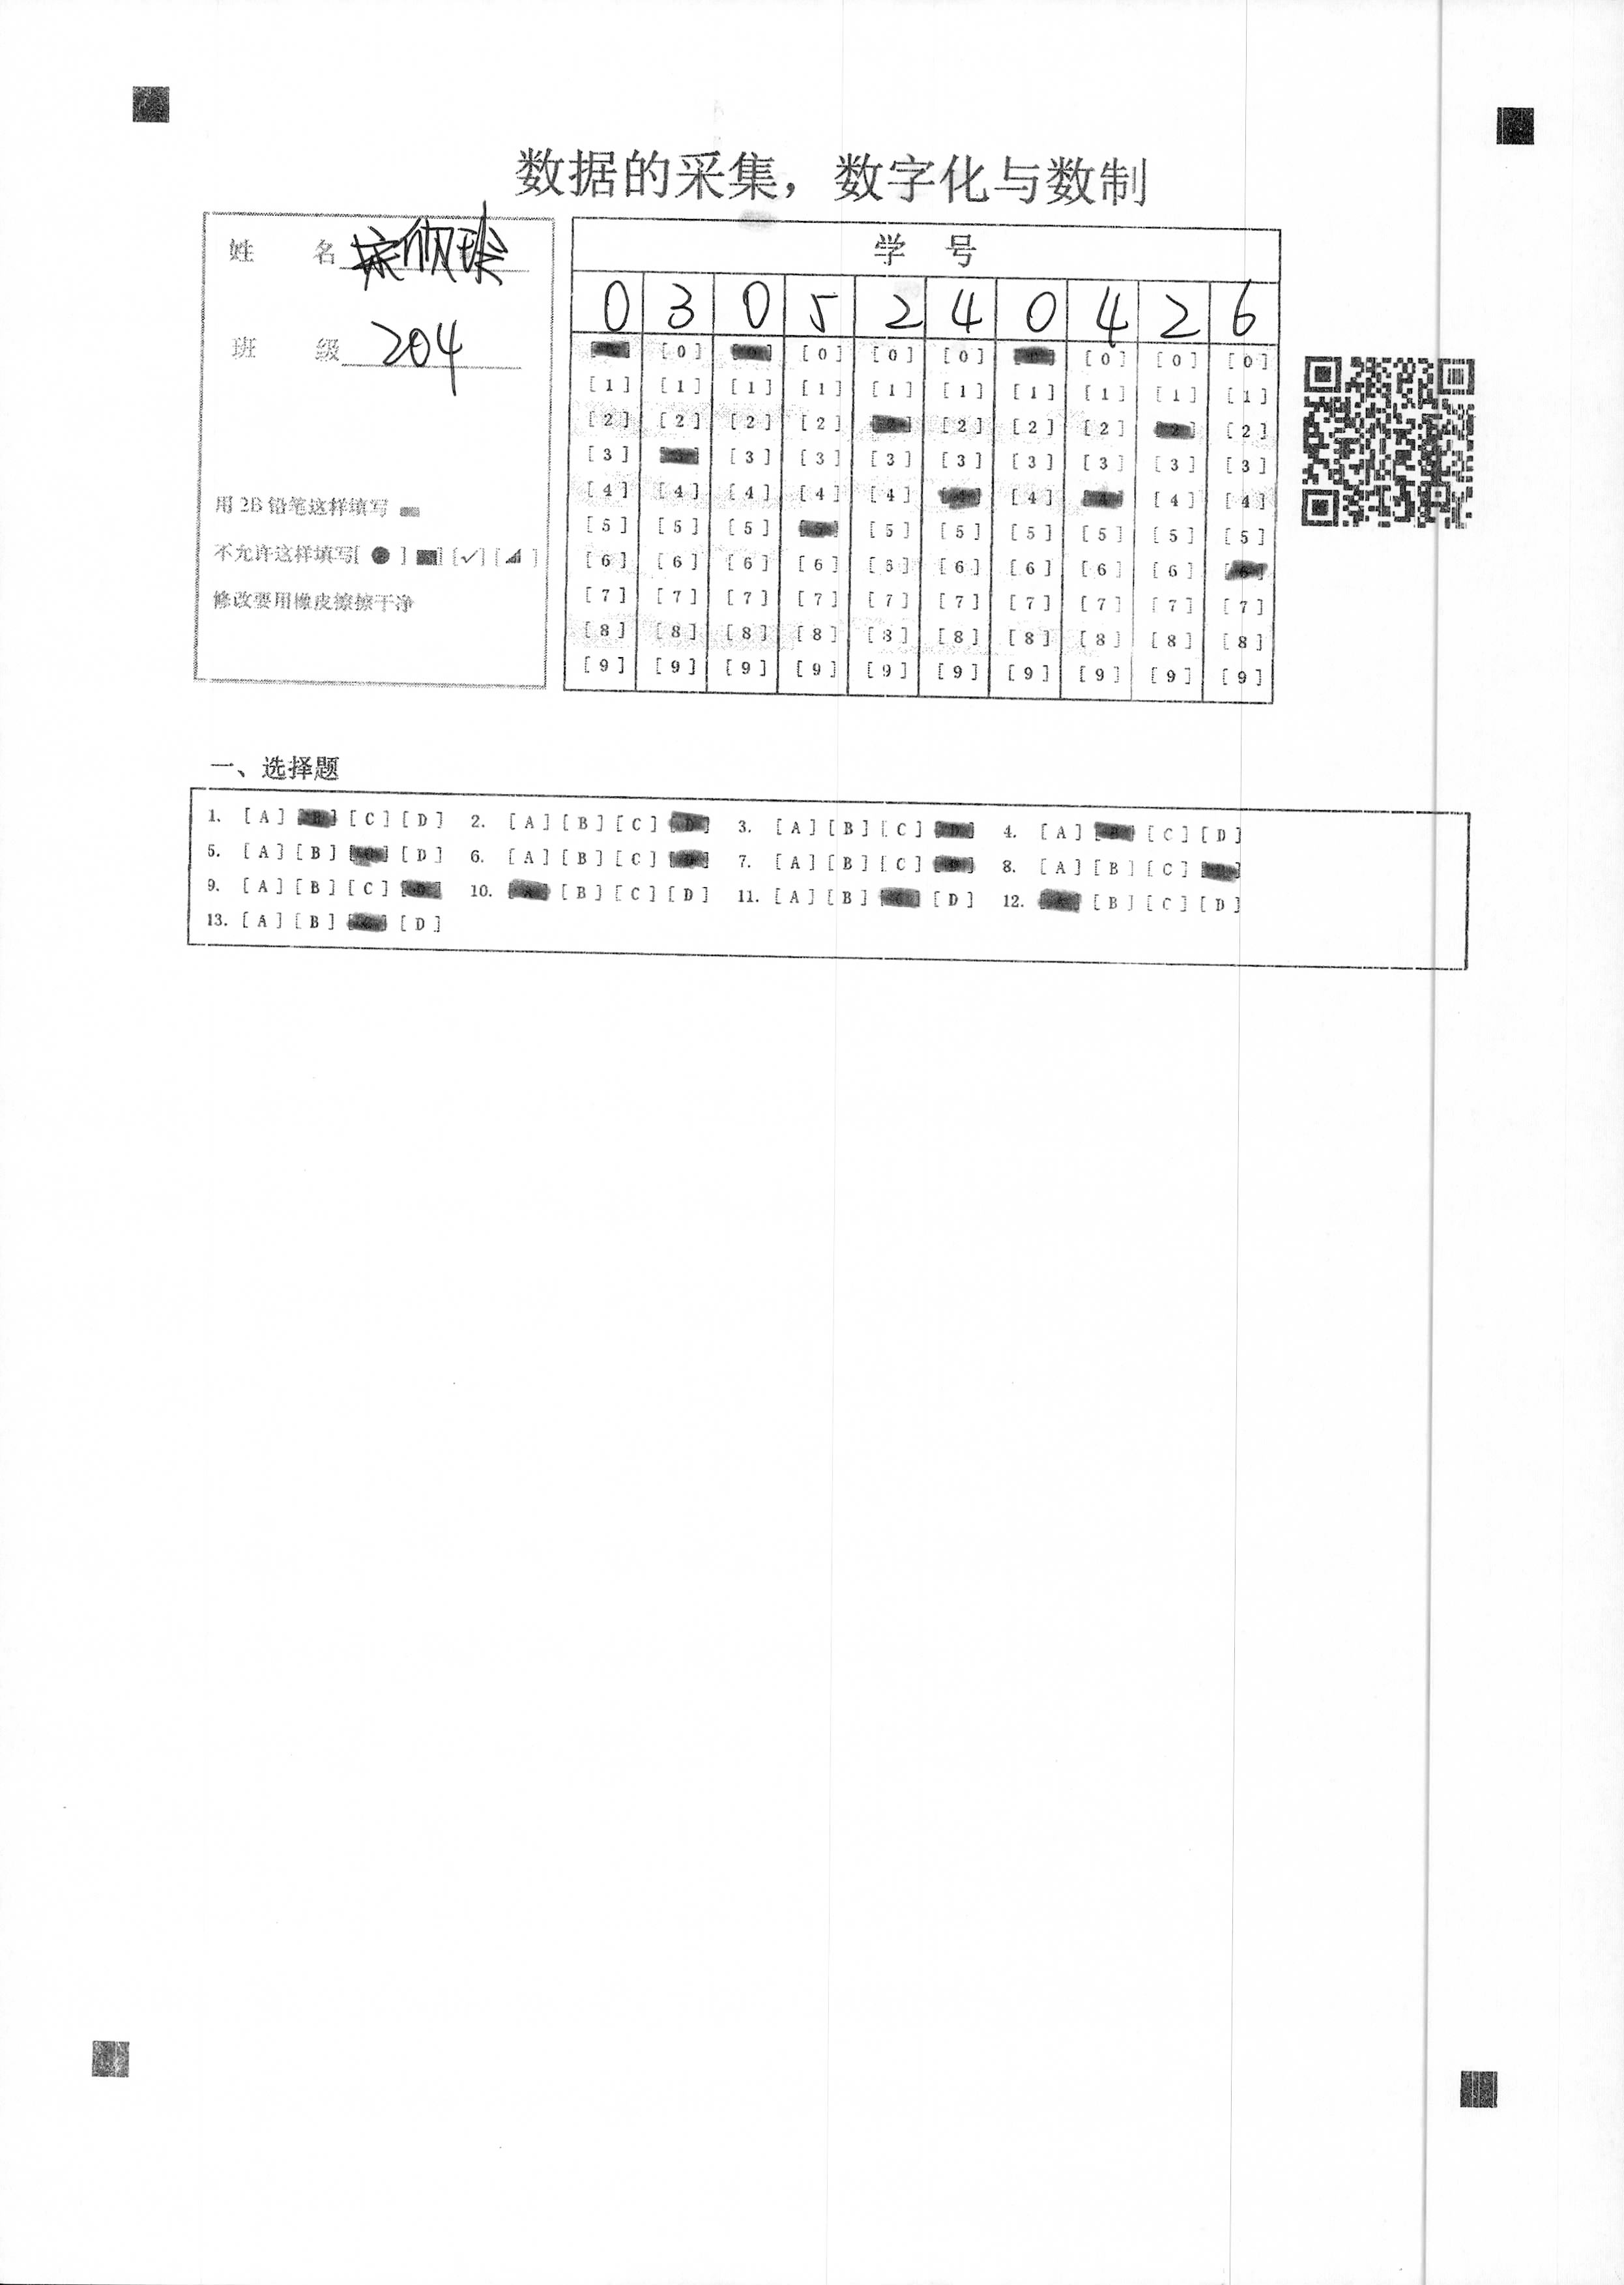 数据的采集，数字化与数制
姓 名
班 级 204
用 2B 铅笔这样填写
不允许这样填写[ ● ] ■] [✓] [◢ ]
修改要用橡皮擦擦干净
学 号
0 3 0 5 2 4 0 4 2 6
[0] [0] [0] [0] [0] [0] [0]
[1] [1] [1] [1] [1] [1] [1] [1] [1] [1]
[2] [2] [2] [2] [2] [2] [2] [2]
[3] [3] [3] [3] [3] [3] [3] [3] [3]
[4] [4] [4] [4] [4] [4] [4] [4]
[5] [5] [5] [5] [5] [5] [5] [5] [5]
[6] [6] [6] [6] [6] [6] [6] [6] [6]
[7] [7] [7] [7] [7] [7] [7] [7] [7] [7]
[8] [8] [8] [8] [8] [8] [8] [8] [8] [8]
[9] [9] [9] [9] [9] [9] [9] [9] [9] [9]
一、选择题
1. [A] [B] [C] [D] 2. [A] [B] [C] [D] 3. [A] [B] [C] [D] 4. [A] [B] [C] [D]
5. [A] [B] [C] [D] 6. [A] [B] [C] [D] 7. [A] [B] [C] [D] 8. [A] [B] [C] [D]
9. [A] [B] [C] [D] 10. [A] [B] [C] [D] 11. [A] [B] [C] [D] 12. [A] [B] [C] [D]
13. [A] [B] [C] [D]